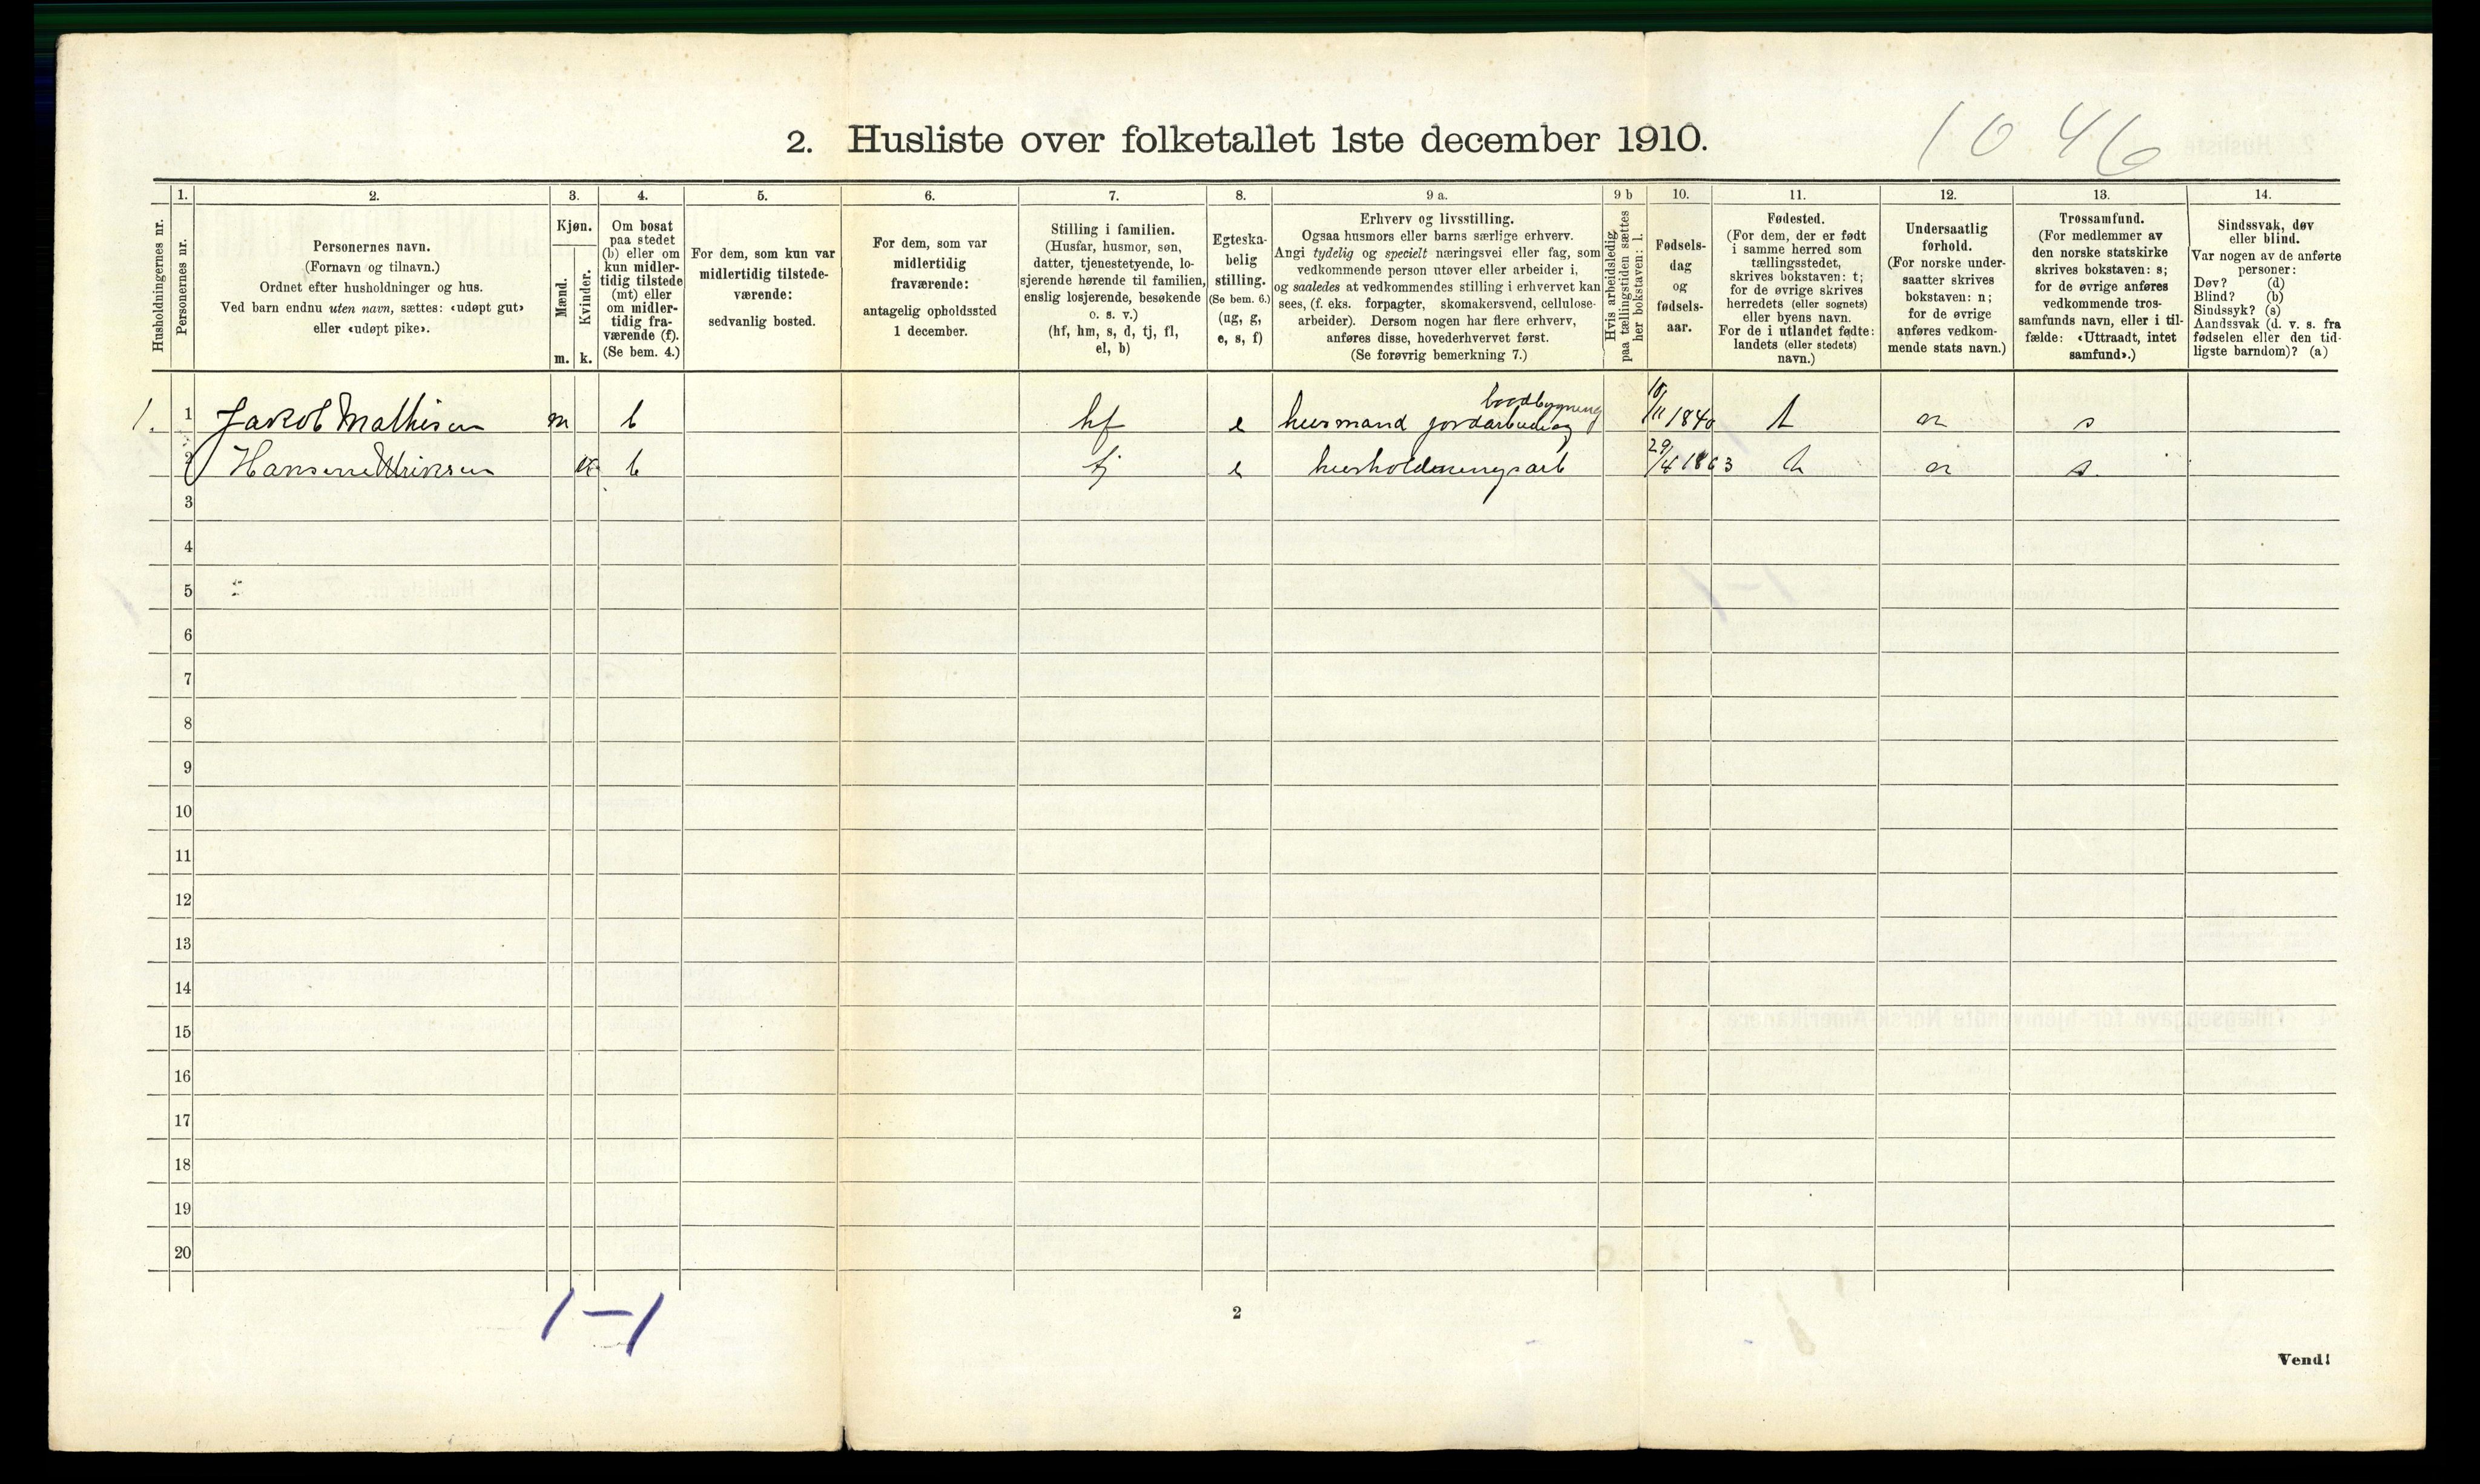 1046
2. Husliste over folketallet 1ste december 1910.
Husholdningernes nr.
1.
Personernes nr.
2.
Personernes navn.
(Fornavn og tilnavn.)
Ordnet efter husholdninger og hus.
Ved barn endnu uten navn, sættes: «udøpt gut»
eller «udøpt pike».
3.
Kjøn.
Mænd.
m.
Kvinder.
k.
4.
Om bosat
paa stedet
(b) eller om
kun midler-
tidig tilstede
(mt) eller
om midler-
tidig fra-
værende (f).
(Se bem. 4.)
5.
For dem, som kun var
midlertidig tilstede-
værende:
sedvanlig bosted.
6.
For dem, som var
midlertidig
fraværende:
antagelig opholdssted
1 december.
7.
Stilling i familien.
(Husfar, husmor, søn,
datter, tjenestetyende, lo-
sjerende hørende til familien,
enslig losjerende, besøkende
o. s. v.)
(hf, hm, s, d, tj, fl,
el, b)
8.
Egteska-
belig
stilling.
(Se bem. 6.)
(ug, g,
e, s, f)
9 a.
Erhverv og livsstilling.
Ogsaa husmors eller barns særlige erhverv.
Angi tydelig og specielt næringsvei eller fag, som
vedkommende person utøver eller arbeider i,
og saaledes at vedkommendes stilling i erhvervet kan
sees, (f. eks. forpagter, skomakersvend, cellulose-
arbeider). Dersom nogen har flere erhverv,
anføres disse, hovederhvervet først.
(Se forøvrig bemerkning 7.)
9 b
Hvis arbeidsledig
paa tællingstiden sættes
her bokstaven: l.
10.
Fødsels-
dag
og
fødsels-
aar.
11.
Fødested.
(For dem, der er født
i samme herred som
tællingsstedet,
skrives bokstaven: t;
for de øvrige skrives
herredets (eller sognets)
eller byens navn.
For de i utlandet fødte:
landets (eller stedets)
navn.)
12.
Undersaatlig
forhold.
(For norske under-
saatter skrives
bokstaven: n;
for de øvrige
anføres vedkom-
mende stats navn.)
13.
Trossamfund.
(For medlemmer av
den norske statskirke
skrives bokstaven: s;
for de øvrige anføres
vedkommende tros-
samfunds navn, eller i til-
fælde: «Uttraadt, intet
samfund».)
14.
Sindssvak, døv
eller blind.
Var nogen av de anførte
personer:
Døv? (d)
Blind? (b)
Sindssyk? (s)
Aandssvak (d. v. s. fra
fødselen eller den tid-
ligste barndom)? (a)
1. 1 Jakob Mathisen m b hf e husmand jordarbeide og baadbygning 10/11 1840 t n s
2 Hansine k b tj e husholdningsarb 29/4 1863 t n s
3
4
5
6
7
8
9
10
11
12
13
14
15
16
17
18
19
20
1–1
2
Vend!